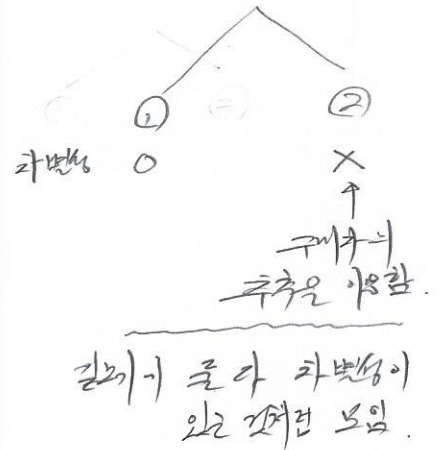 ① ②
차별성 O X
↑
구매자의
추측을 이용함.
겉보기에 둘 다 차별성이
있는 것처럼 보임.